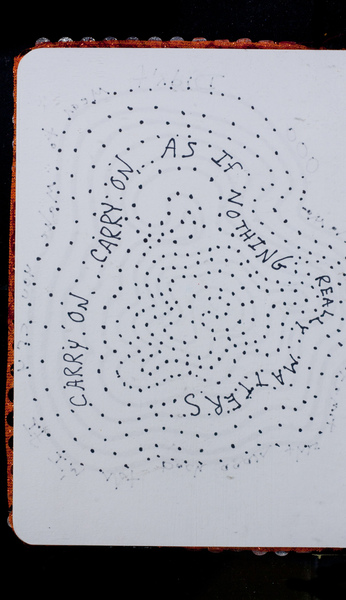 CARRY ON
CARRY ON
AS If
NOTHING
REALLY
MATTERS